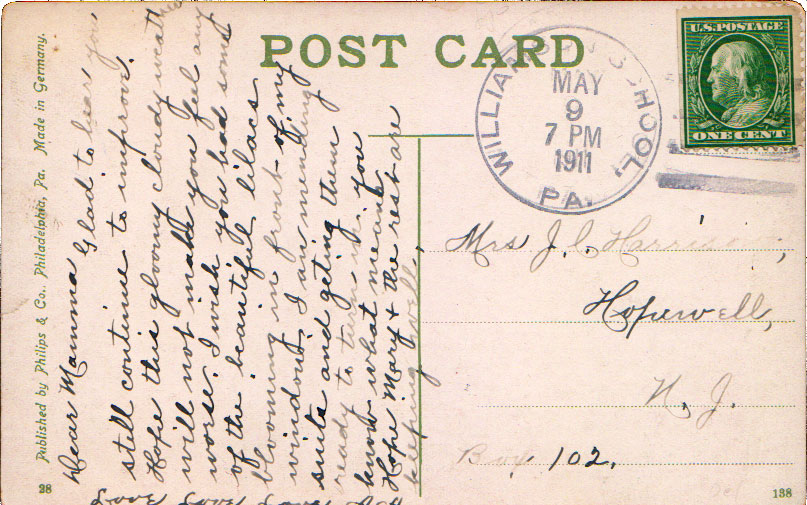 POST CARD
Published by Philips & Co., Philadelphia, Pa. Made in Germany.
WILLIAMSON SCHOOL,
MAY
9
7 PM
1911
PA.
U.S. POSTAGE
ONE CENT
Dear Mamma
Glad to hear you
still continue to improve.
Hope this gloomy cloudy weather
will not make you feel any
worse. I wish you had some
of the beautiful lilacs
blooming in front of my
window. I am mending
suits and geting them
ready to turn in. You
know what means
Hope Mary & the rest are
keeping well.
Love Love Love
Mrs J. C. Harrison,
Hopewell,
N. J.
Box 102.
28
138